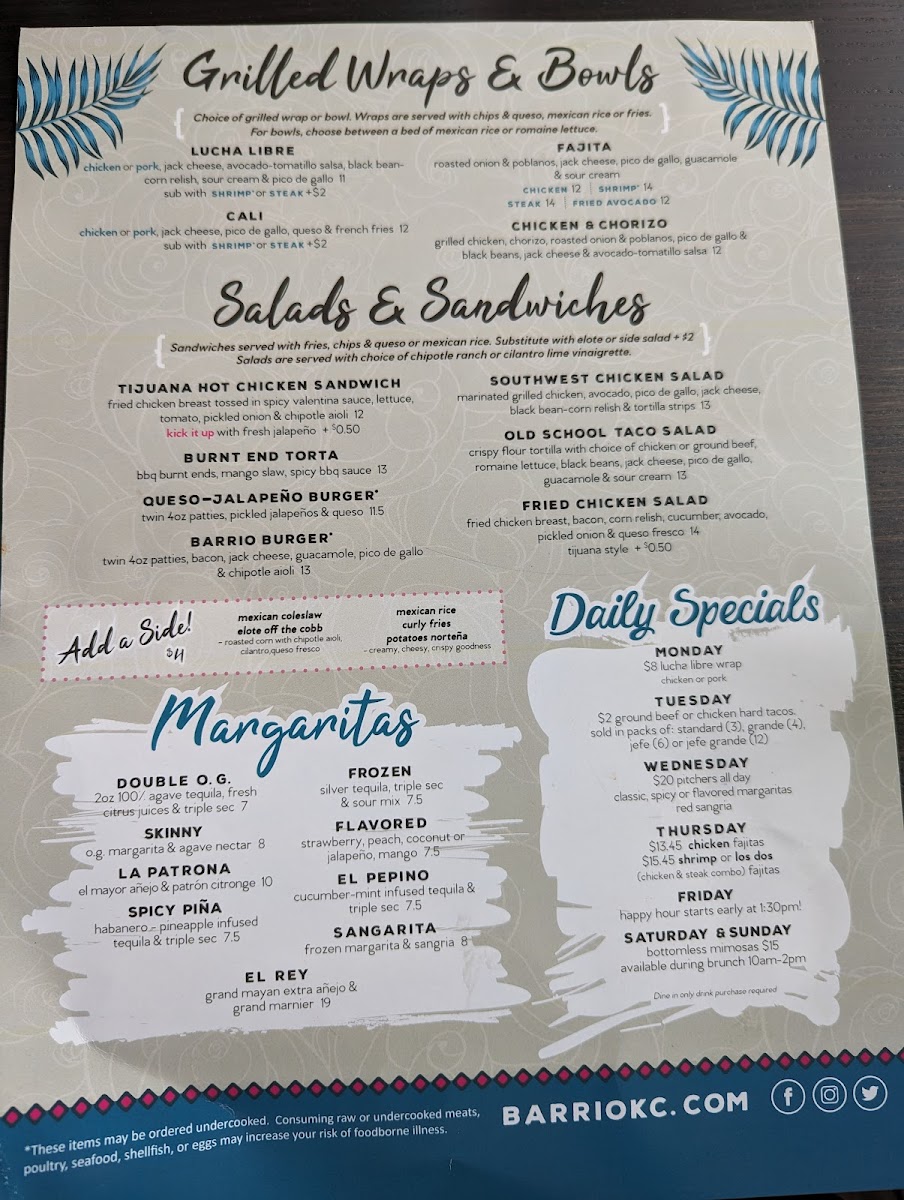 Grilled Wraps & Bowls
Choice of grilled wrap or bowl. Wraps are served with chips & queso, mexican rice or fries.
For bowls, choose between a bed of mexican rice or romaine lettuce.
LUCHA LIBRE
chicken or pork, jack cheese, avocado-tomatillo salsa, black bean-
corn relish, sour cream & pico de gallo 11
sub with SHRIMP* or STEAK +$2
CALI
chicken or pork, jack cheese, pico de gallo, queso & french fries 12
sub with SHRIMP* or STEAK +$2
FAJITA
roasted onion & poblanos, jack cheese, pico de gallo, guacamole
& sour cream
CHICKEN 12 | SHRIMP* 14
STEAK 14 | FRIED AVOCADO 12
CHICKEN & CHORIZO
grilled chicken, chorizo, roasted onion & poblanos, pico de gallo &
black beans, jack cheese & avocado-tomatillo salsa 12
Salads & Sandwiches
Sandwiches served with fries, chips & queso or mexican rice. Substitute with elote or side salad + $2
Salads are served with choice of chipotle ranch or cilantro lime vinaigrette.
TIJUANA HOT CHICKEN SANDWICH
fried chicken breast tossed in spicy valentina sauce, lettuce,
tomato, pickled onion & chipotle aioli 12
kick it up with fresh jalapeño + $0.50
BURNT END TORTA
bbq burnt ends, mango slaw, spicy bbq sauce 13
QUESO-JALAPEÑO BURGER*
twin 4oz patties, pickled jalapeños & queso 11.5
BARRIO BURGER*
twin 4oz patties, bacon, jack cheese, guacamole, pico de gallo
& chipotle aioli 13
SOUTHWEST CHICKEN SALAD
marinated grilled chicken, avocado, pico de gallo, jack cheese,
black bean-corn relish & tortilla strips 13
OLD SCHOOL TACO SALAD
crispy flour tortilla with choice of chicken or ground beef,
romaine lettuce, black beans, jack cheese, pico de gallo,
guacamole & sour cream 13
FRIED CHICKEN SALAD
fried chicken breast, bacon, corn relish, cucumber, avocado,
pickled onion & queso fresco 14
tijuana style + $0.50
Add a Side!
$4
mexican coleslaw
elote off the cobb
- roasted corn with chipotle aioli,
cilantro, queso fresco
mexican rice
curly fries
potatoes norteña
- creamy, cheesy, crispy goodness
Margaritas
DOUBLE O.G.
2oz 100% agave tequila, fresh
citrus juices & triple sec 7
SKINNY
o.g. margarita & agave nectar 8
LA PATRONA
el mayor añejo & patrón citronge 10
SPICY PIÑA
habanero - pineapple infused
tequila & triple sec 7.5
FROZEN
silver tequila, triple sec
& sour mix 7.5
FLAVORED
strawberry, peach, coconut or
jalapeño, mango 7.5
EL PEPINO
cucumber-mint infused tequila &
triple sec 7.5
SANGARITA
frozen margarita & sangria 8
EL REY
grand mayan extra añejo &
grand marnier 19
Daily Specials
MONDAY
$8 lucha libre wrap
chicken or pork
TUESDAY
$2 ground beef or chicken hard tacos.
sold in packs of: standard (3), grande (4),
jefe (6) or jefe grande (12)
WEDNESDAY
$20 pitchers all day
classic, spicy or flavored margaritas
red sangria
THURSDAY
$13.45 chicken fajitas
$15.45 shrimp or los dos
(chicken & steak combo) fajitas
FRIDAY
happy hour starts early at 1:30pm!
SATURDAY & SUNDAY
bottomless mimosas $15
available during brunch 10am-2pm
Dine in only drink purchase required
*These items may be ordered undercooked. Consuming raw or undercooked meats,
poultry, seafood, shellfish, or eggs may increase your risk of foodborne illness.
BARRIOKC.COM